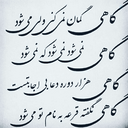 گاهی گمان نمی کنی ولی می شود
گاهی نمی شود نمی شود که نمی شود
گاهی هزار دوره دعا بی اجابت است
گاهی نگفته قرعه به نام تو می شود